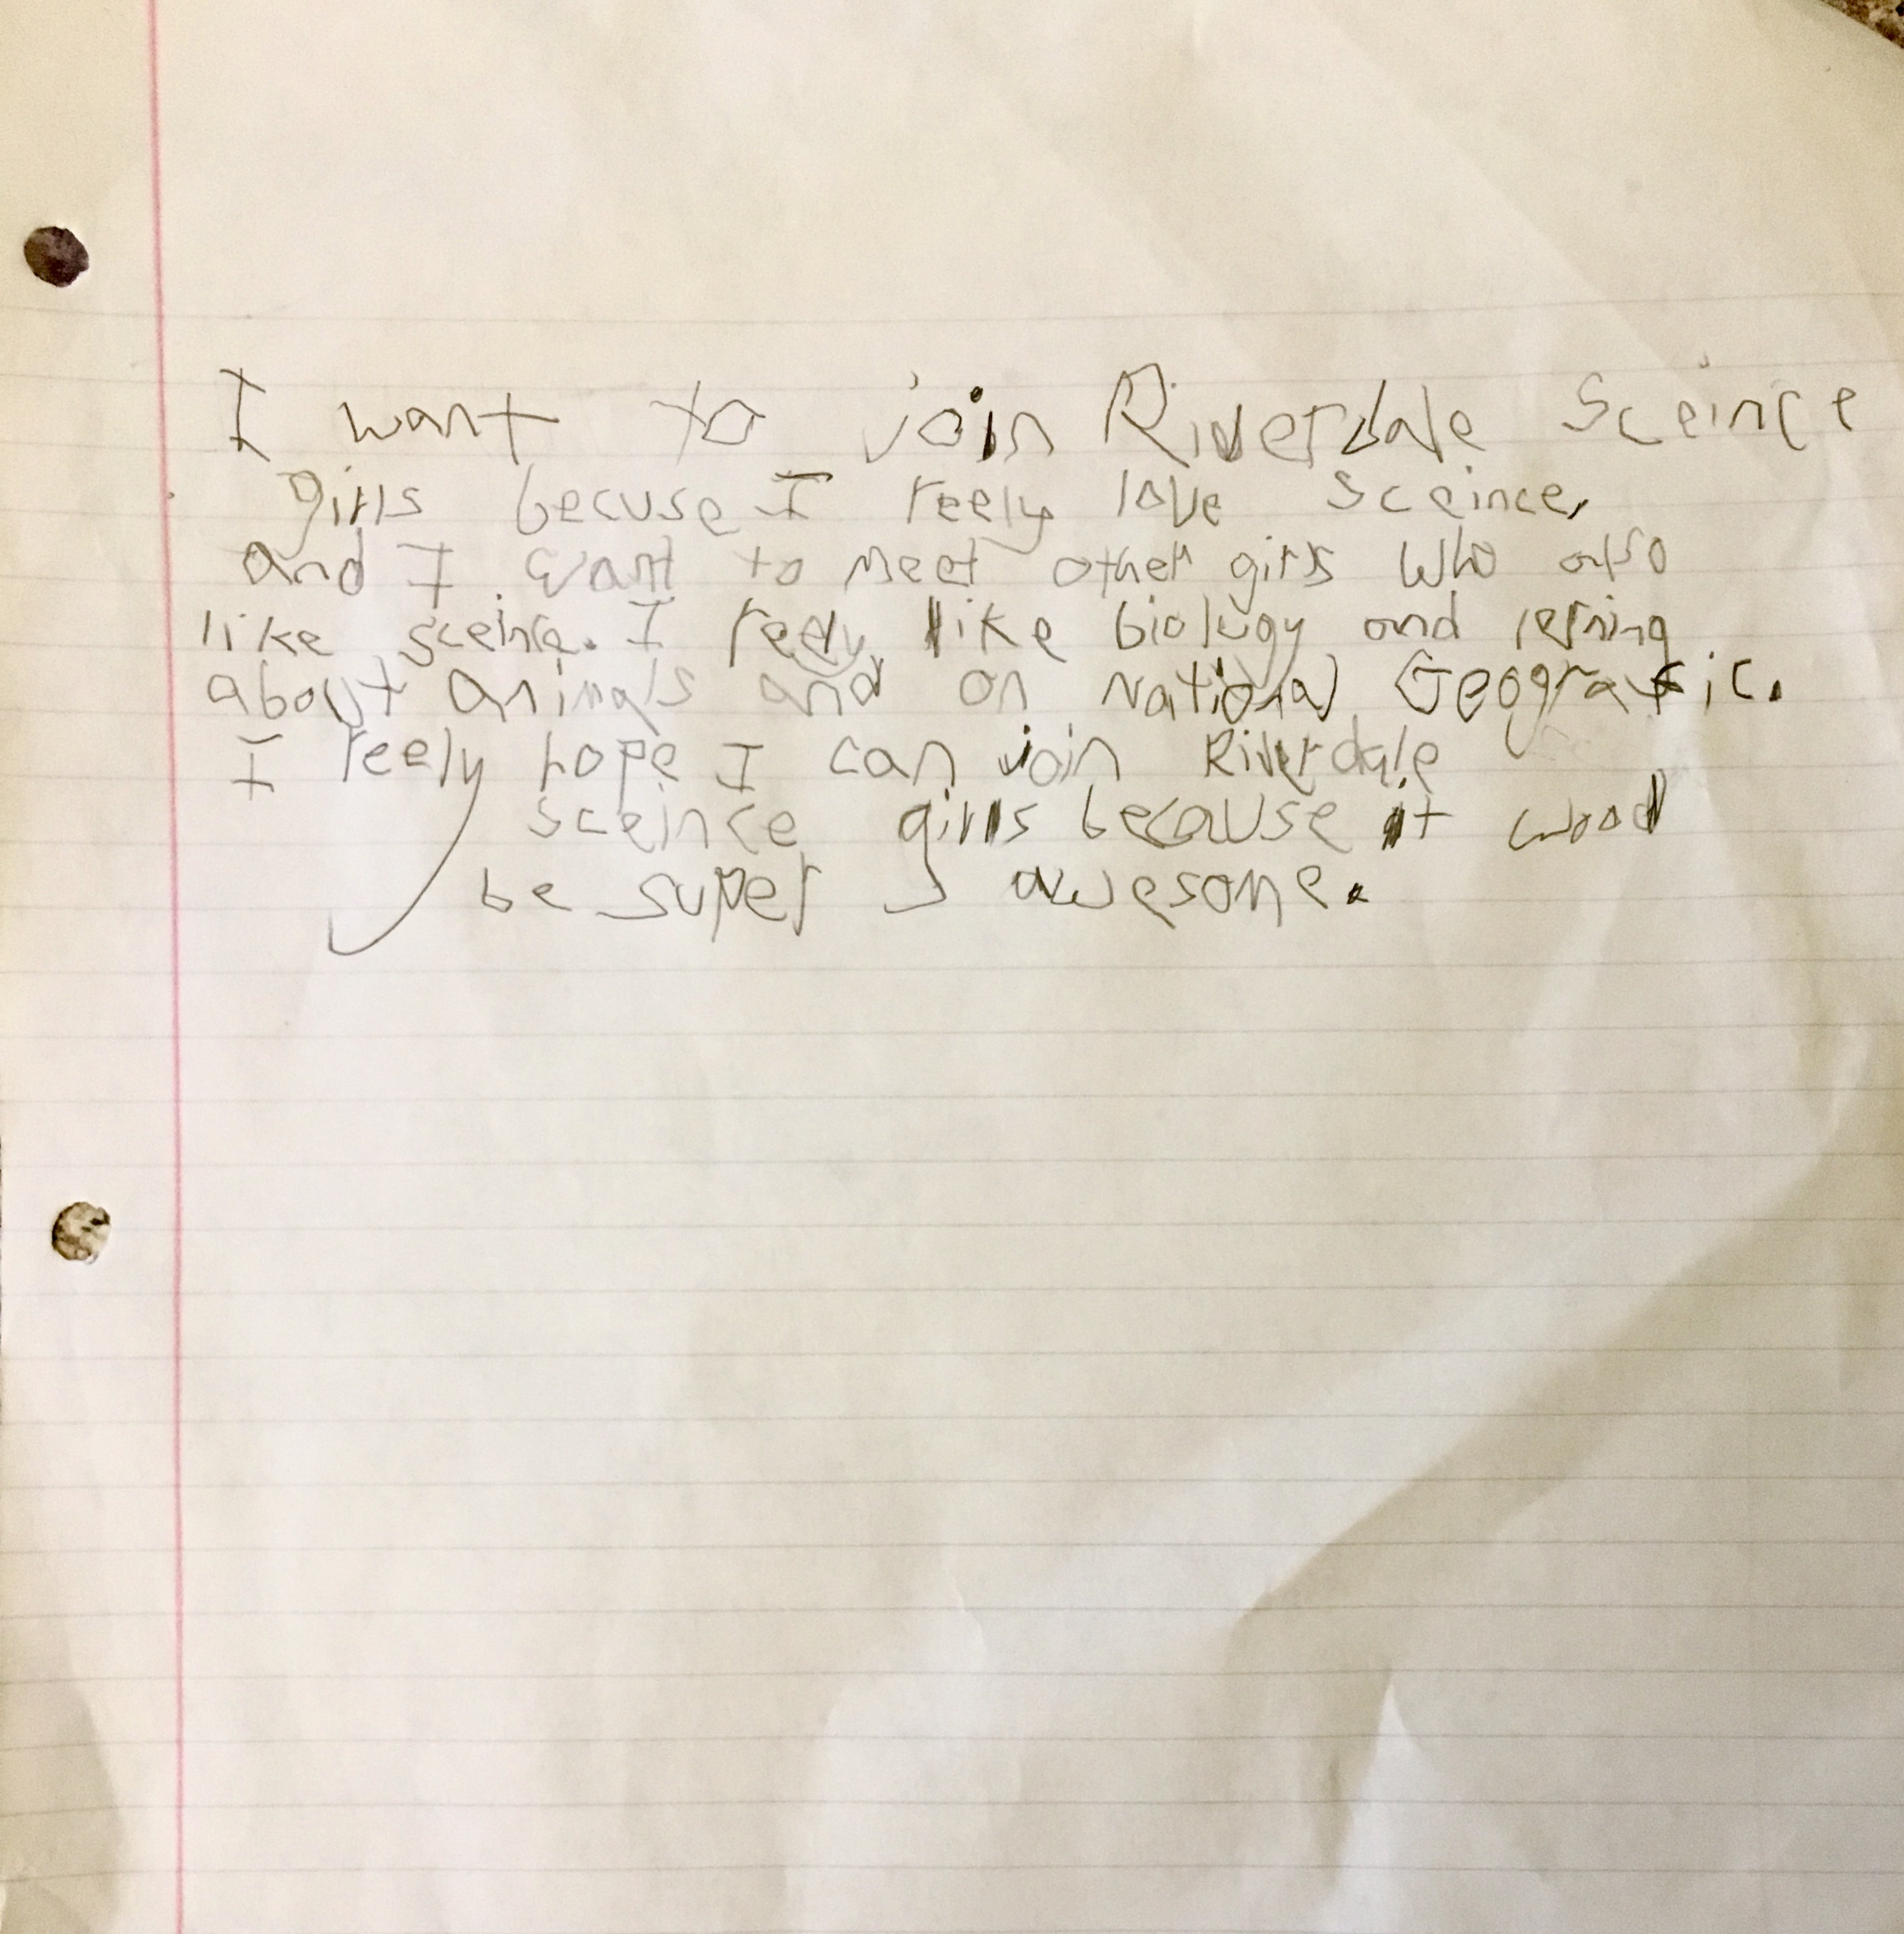 I want to join Riverdale Sceince
girls becuse I reely love sceince,
and I want to meet other girls who also
like sceince. I reely like biology and lerning
about animals and on National Geografic.
I reely hope I can join Riverdale
sceince girls because it wood
be super awesome.